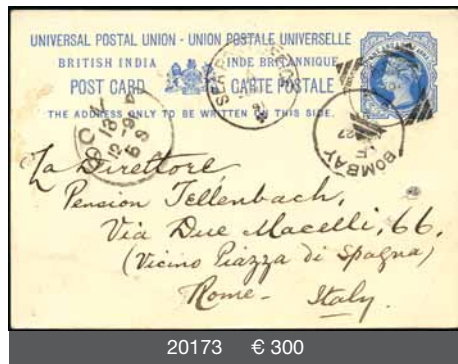 UNIVERSAL POSTAL UNION - UNION POSTALE UNIVERSELLE
BRITISH INDIA INDE BRITANNIQUE
POST CARD CARTE POSTALE
THE ADDRESS ONLY TO BE WRITTEN ON THIS SIDE.
BOMBAY
La Direttore,
Pension Tellenbach,
Via Due Macelli, 66.
(Vicino Piazza di Spagna)
Rome - Italy.
20173 € 300